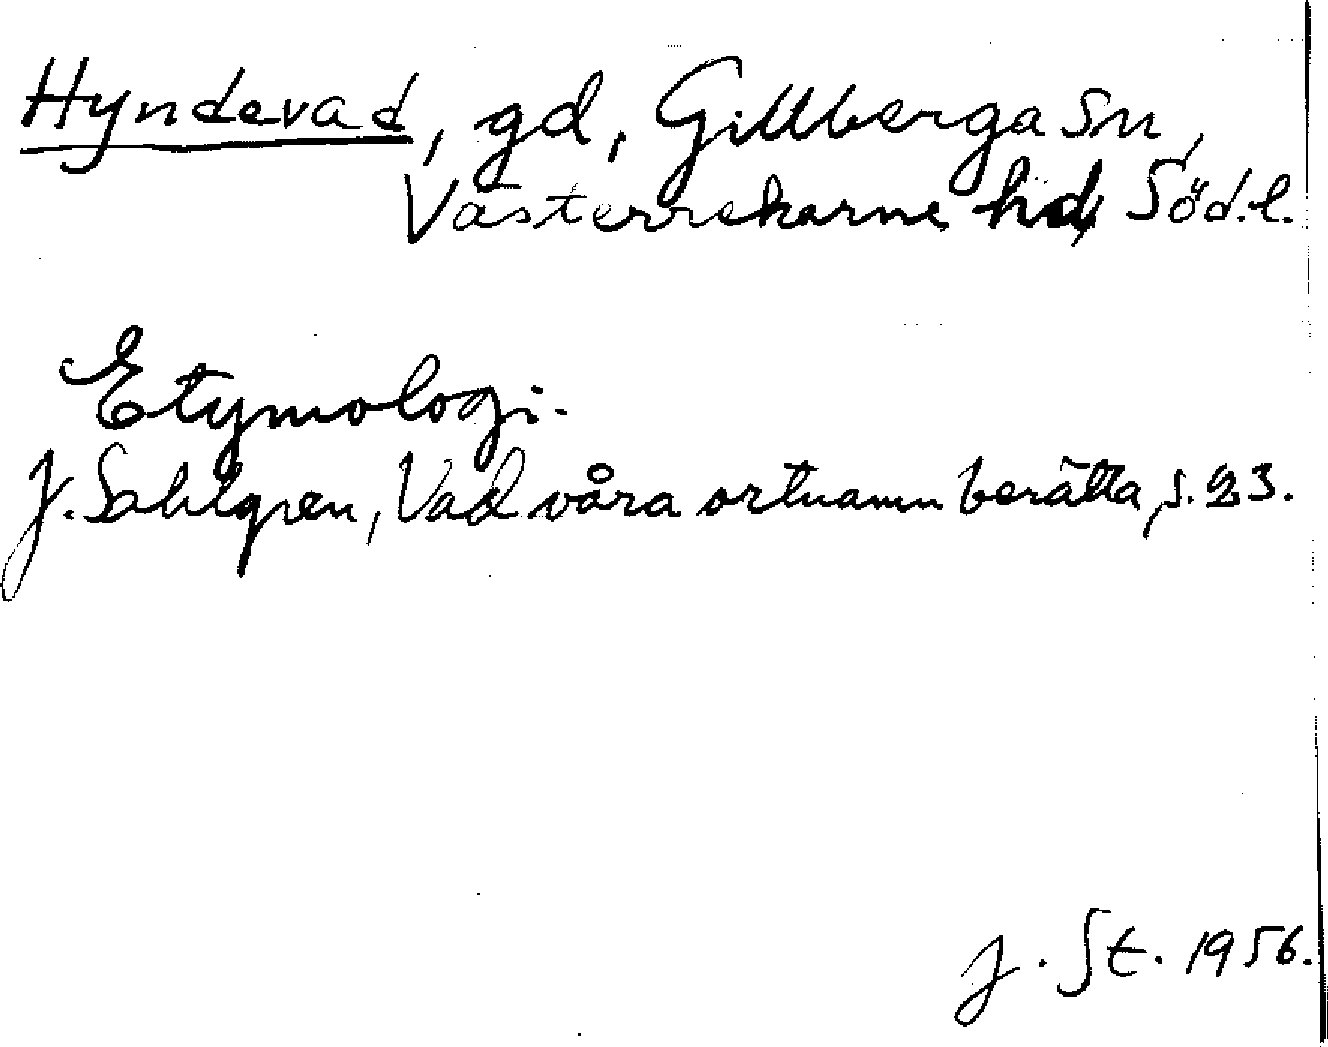 Hyndevad, gd, Gillberga sn,
Västerrekarne hd, Söd.l.
Etymologi.
J. Sahlgren, Vad våra ortnamn berätta, s. 23.
J. St. 1956.